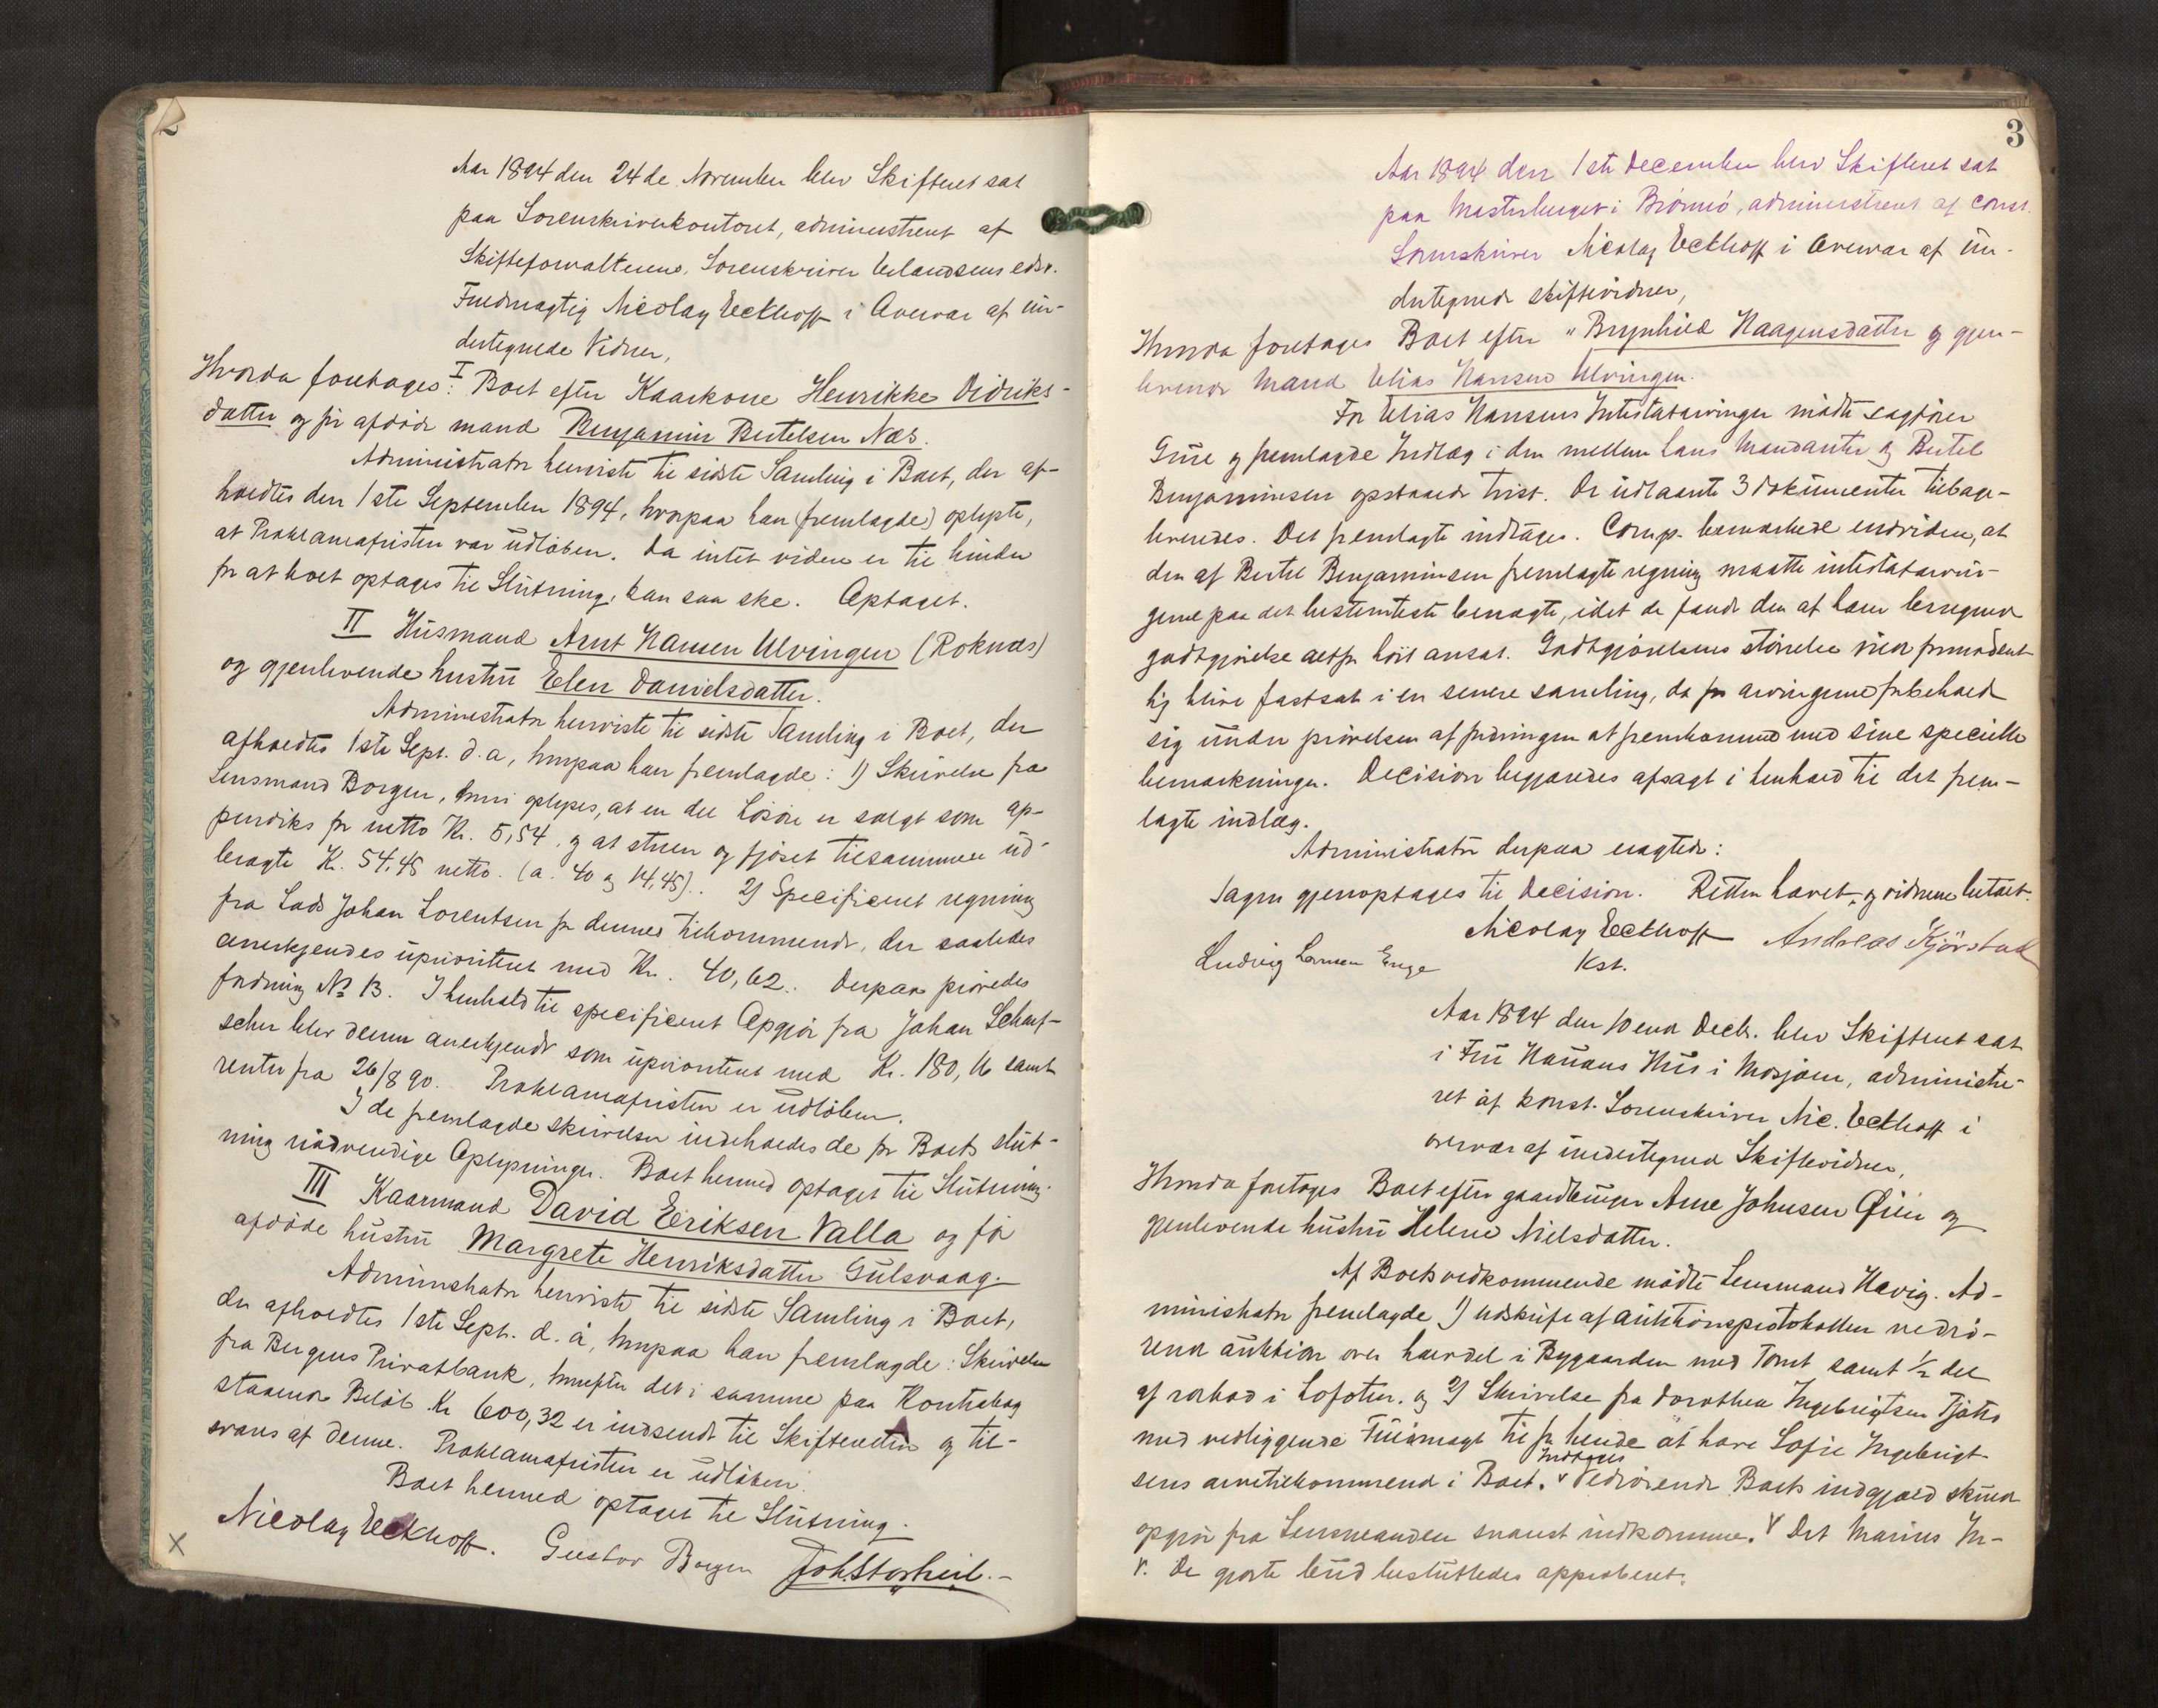 2
Aar 1894 den 24de November blev Skifteret sat
paa Sorenskriverkontoret, administreret af
Skifteforvalteren, Sorenskriver Erlandsens edsv.
Fuldmægtig Nicolay Eckhoff i Overvær af un-
dertegnede Vidner,
Hvorda foretages: I Boet efter Kaarkone Henrikke Didriks-
datter og før afdøde mand Benjamin Bertelsen Næs.
Administrator henviste til sidste Samling i Boet, der af-
holdtes den 1ste September 1894, hvorpaa han (fremlagde) oplyste,
at Proklamafristen var udløben. Da intet videre er til hinder
for at boet optages til Slutning, kan saa ske. Optaget.
II Husmand Arnt Hansen Ulvingen (Roknæs)
og gjenlevende hustru Elen Danielsdatter.
Administrator henviste til sidste Samling i Boet, der
afholdtes 1ste Sept. d. a, hvorpaa han fremlagde: 1) Skrivelse fra
Lensmand Borgen, hvori oplyses, at en del Løsøre er solgt som ap-
pendiks for netto Kr. 5,54, og at stuen og fjøset tilsammen ud-
bragte Kr. 54,45 netto. (a. 40 og 14,45). 2) Specificeret regning
fra Lads Johan Lorentsen for dennes tilkommende, der saaledes
anerkjendes uprioriteret med Kr. 40,62. Derpaa prøvedes
fordring No 13. I henhold til specificeret Opgjør fra Johan
scher blev denne anerkjendt som uprioriteret med Kr. 180,16 samt
renter fra 26/8 90. Proklamafristen er udløben.
I de fremlagde skrivelser indeholdes de for Boets slut-
ning nødvendige Oplysninger. Boet hermed optaget til Slutning.
III Kaarmand David Eriksen Valla og før
afdøde hustru Margrete Henriksdatter Gulsvaag.
Administrator henviste til sidste Samling i Boet,
der afholdtes 1ste Sept. d. å, hvorpaa han fremlagde: Skrivelse
fra Bergens Privatbank, hvorefter det i samme paa Kontrabog
staaende Beløb Kr 600,32 er indsendt til Skifteretten og til-
svares af denne. Proklamafristen er udløben.
Boet hermed optaget til Slutning.
Nicolay Eckhoff. Gustav Borgen Joh. Storheil.
X
3
Aar 1894 den 1ste December blev Skifteret sat
paa Mosterhuget i Brønnø, administreret af const.
Sorenskriver Nicolay Eckhoff i Overvær af un-
dertegnede skiftevidner,
Hvorda foretages Boet efter "Brynhild Haagensdatter og gjen-
levende Mand Elias Hansen Ulvingen.
For Elias Hansens Intestatarvinger mødte sagfører
Grüe og fremlagde Indlæg i den mellem hans Mandanter og Bertel
Benjaminsen opstaaede tvist. De udlaante 3 dokumenter tilbage-
leveredes. Det fremlagte indtages. Comp. bemærkede endvidere, at
den af Bertel Benjaminsen fremlagte regning maatte intestatarvin-
gerne paa det bestemteste benægte, idet de fandt den af ham beregnede
godtgjørelse altfor høit ansat. Godtgjørelsens størrelse vil formodent-
lig blive fastsat i en senere samling, da for arvingerne forbeholdt
sig under prøvelsen af fordringen at fremkomme med sine specielle
bemærkninger. Decision begjæredes afsagt i henhold til det frem-
lagte indlæg.
Administrator derpaa eragtede:
Sagen gjenoptages til Decision. Retten hævet, og vidnerne betalt.
Nicolay Eckhoff Andreas Kjørstad
Ludvig Larsen Enge Kst.
Aar 1894 den 10ende Decb. blev Skifteret sat
i Fru Hanans Hus i Mosjøen, administre-
ret af konst. Sorenskriver Nic. Eckhoff i
overvær af undertegnede Skiftevidner,
Hvorda foretages Boet efter gaardbruger Arne Johnsen Øien og
gjenlevende hustru Helene Nielsdatter.
Af Boets vedkommende mødte Lensmand Havig. Ad-
ministrator fremlagde 1) udskrift af auktionsprotokollen vedrø-
rende auktion over halvdel i Bygaarden med Tomt samt 1/2 del
af rorbod i Lofoten. og 2) Skrivelse fra Dorothea Ingebrigtsen Tjøtta
med vedliggende Fuldmagt til for hende at hæve Sofie Ingebrigt-
Indtages
sens arvetilkommende i Boet. v Vedrørende Boets indgjæld skulde
opgjør fra Lensmanden snarest indkomme. V Det Marius In-
V. De gjorte bud besluttedes approberet.